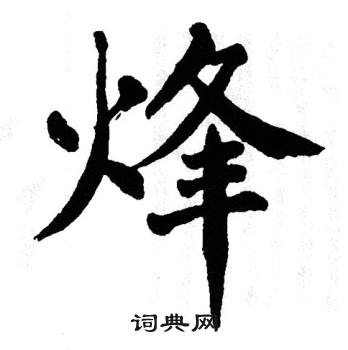 烽
词典网